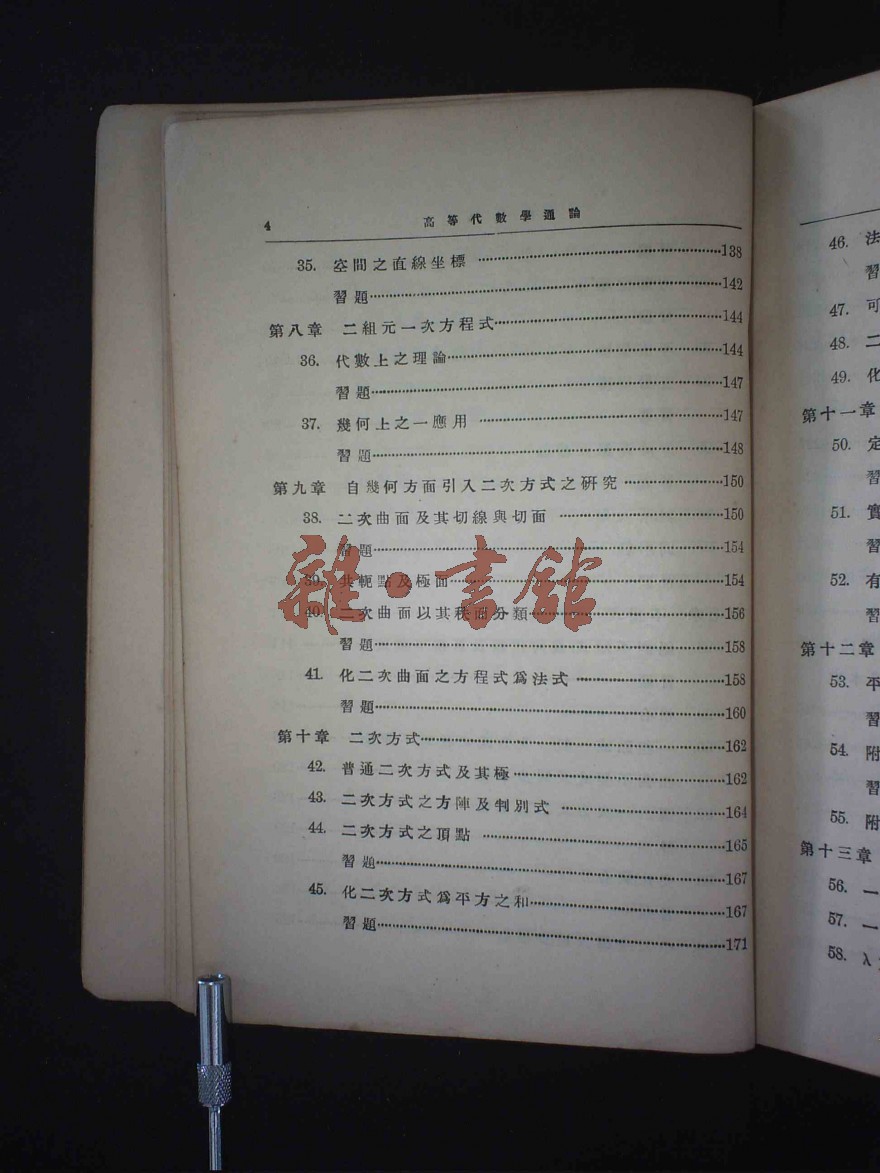 4 高等代數學通論
35. 空間之直線坐標 138
習題 142
第八章 二組元一次方程式 144
36. 代數上之理論 144
習題 147
37. 幾何上之一應用 147
習題 148
第九章 自幾何方面引入二次方式之硏究 150
38. 二次曲面及其切線與切面 150
習題 154
39. 共軛點及極面 154
40. 二次曲面以其秩而分類 156
習題 158
41. 化二次曲面之方程式爲法式 158
習題 160
第十章 二次方式 162
42. 普通二次方式及其極 162
43. 二次方式之方陣及判別式 164
44. 二次方式之頂點 165
習題 167
45. 化二次方式爲平方之和 167
習題 171
雜·書館
46. 法
習
47. 可
48. 二
49. 化
第十一章
50. 定
習
51. 實
習
52. 有
習
第十二章
53. 平
習
54. 附
習
55. 附
第十三章
56. 一
57. 一
58. λ